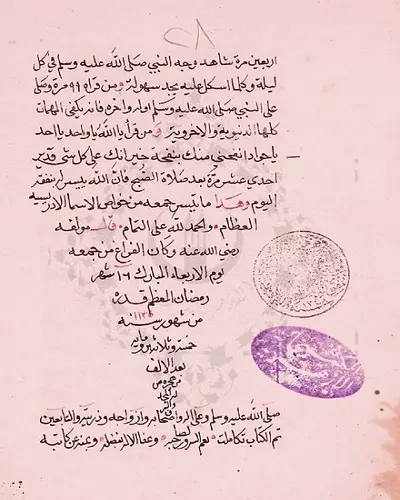 ٢٨
اربعين مرة شاهد وجه النبي صلى الله عليه وسلم في كل
ليلة وكلما اشكل عليه يجد سهولة ومن قراه ٩٩ مرة وصلى
على النبي صلى الله عليه وسلم اوله واخره فانه يكفي المهمات
كلها الدنيوية والاخروية ومن قرأ يا الله يا واحد يا احد
يا جواد انفحني منك بنفحة خير انك على كل شئ قدير
احدي عشر مرة بعد صلاة الصبح فان الله ييسر له نفقة
اليوم وهذا ما تيسر جمعه من خواص الاسما الادريسية
العظام والحمد لله على التمام قال مولفه
رضي الله عنه وكان الفراغ من جمعه
يوم الاربعاء المبارك ١٦ شهر
رمضان المعظم قدره
من شهور سنة ١١٣٥
خمسة وثلاثين ومايه
بعد الالف
من هجرة من
صلى الله عليه وسلم وعلى اله واصحابه وازواجه وذريته والتابعين
تم الكتاب تكاملت نعم السرور لصاحبه وعفا الاله بفضله وعن كاتبه